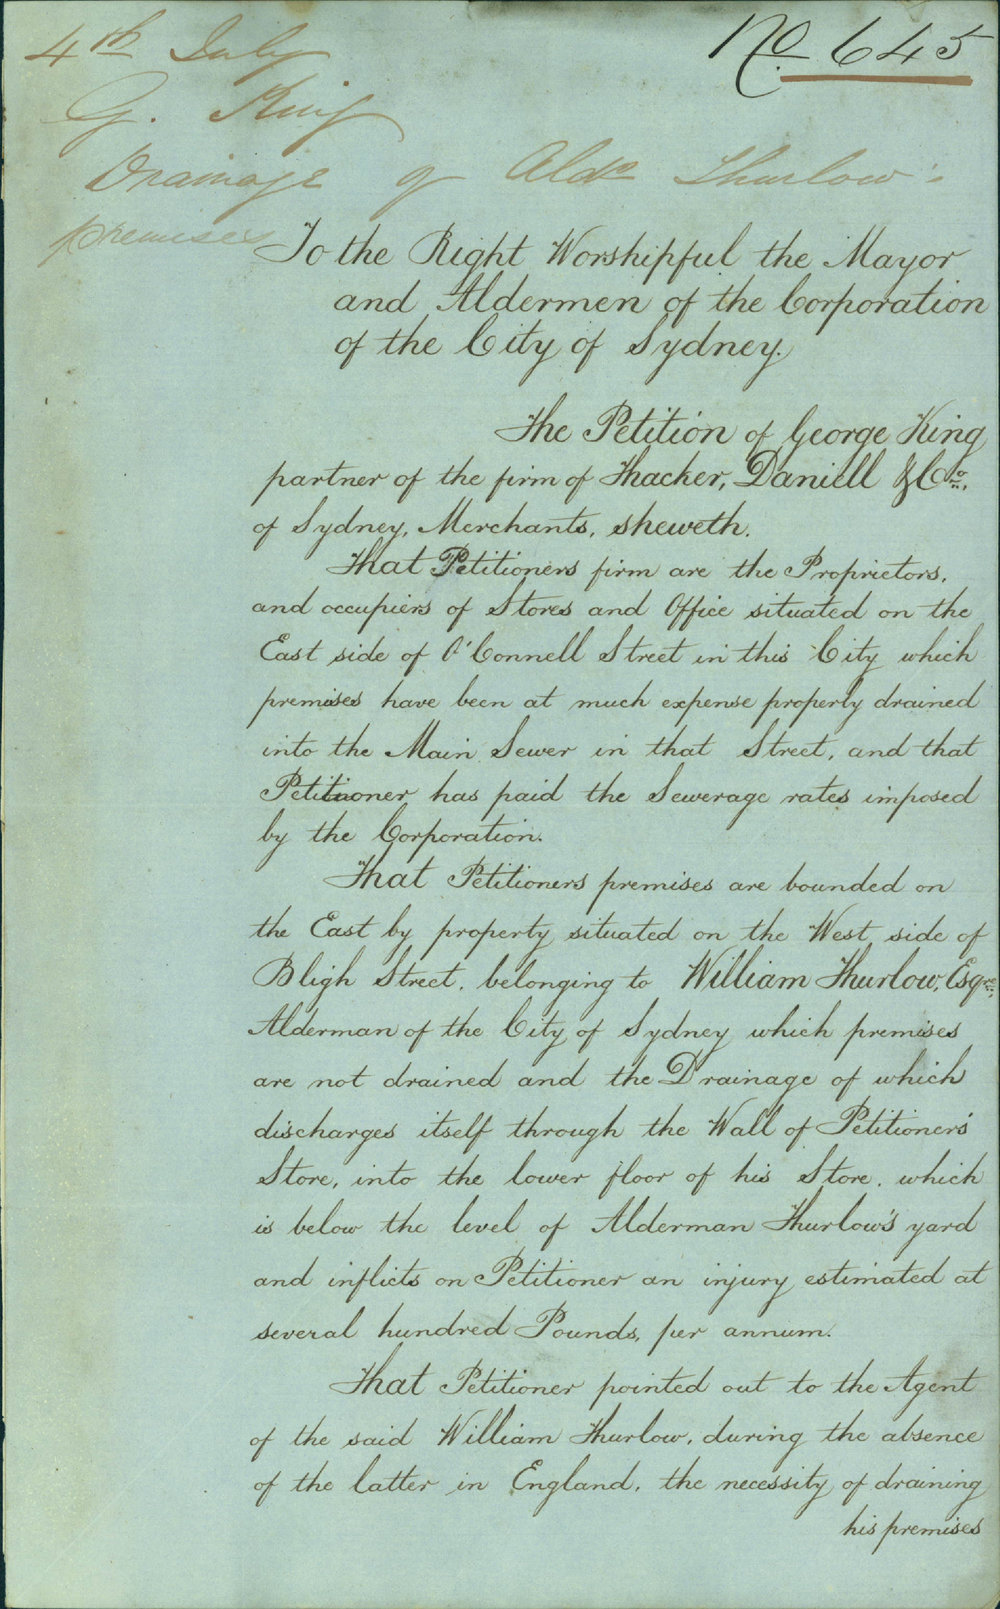 4th July
No. 645
G. King
Drainage of Aldn Thurlow's
premises
To the Right Worshipful the Mayor
and Aldermen of the Corporation
of the City of Sydney.
The Petition of George King
partner of the firm of Thacker, Daniell & Co.,
of Sydney, Merchants, sheweth.
That Petitioners firm are the Proprietors,
and occupiers of Stores and Office situated on the
East side of O'Connell Street in this City which
premises have been at much expense properly drained
into the Main Sewer in that Street, and that
Petitioner has paid the Sewerage rates imposed
by the Corporation.
That Petitioners premises are bounded on
the East by property situated on the West side of
Bligh Street, belonging to William Thurlow, Esqre.,
Alderman of the City of Sydney which premises
are not drained and the Drainage of which
discharges itself through the Wall of Petitioner's
Store, into the lower floor of his Store, which
is below the level of Alderman Thurlow's yard
and inflicts on Petitioner an injury estimated at
several hundred Pounds, per annum.
That Petitioner pointed out to the Agent
of the said William Thurlow, during the absence
of the latter in England, the necessity of draining
his premises